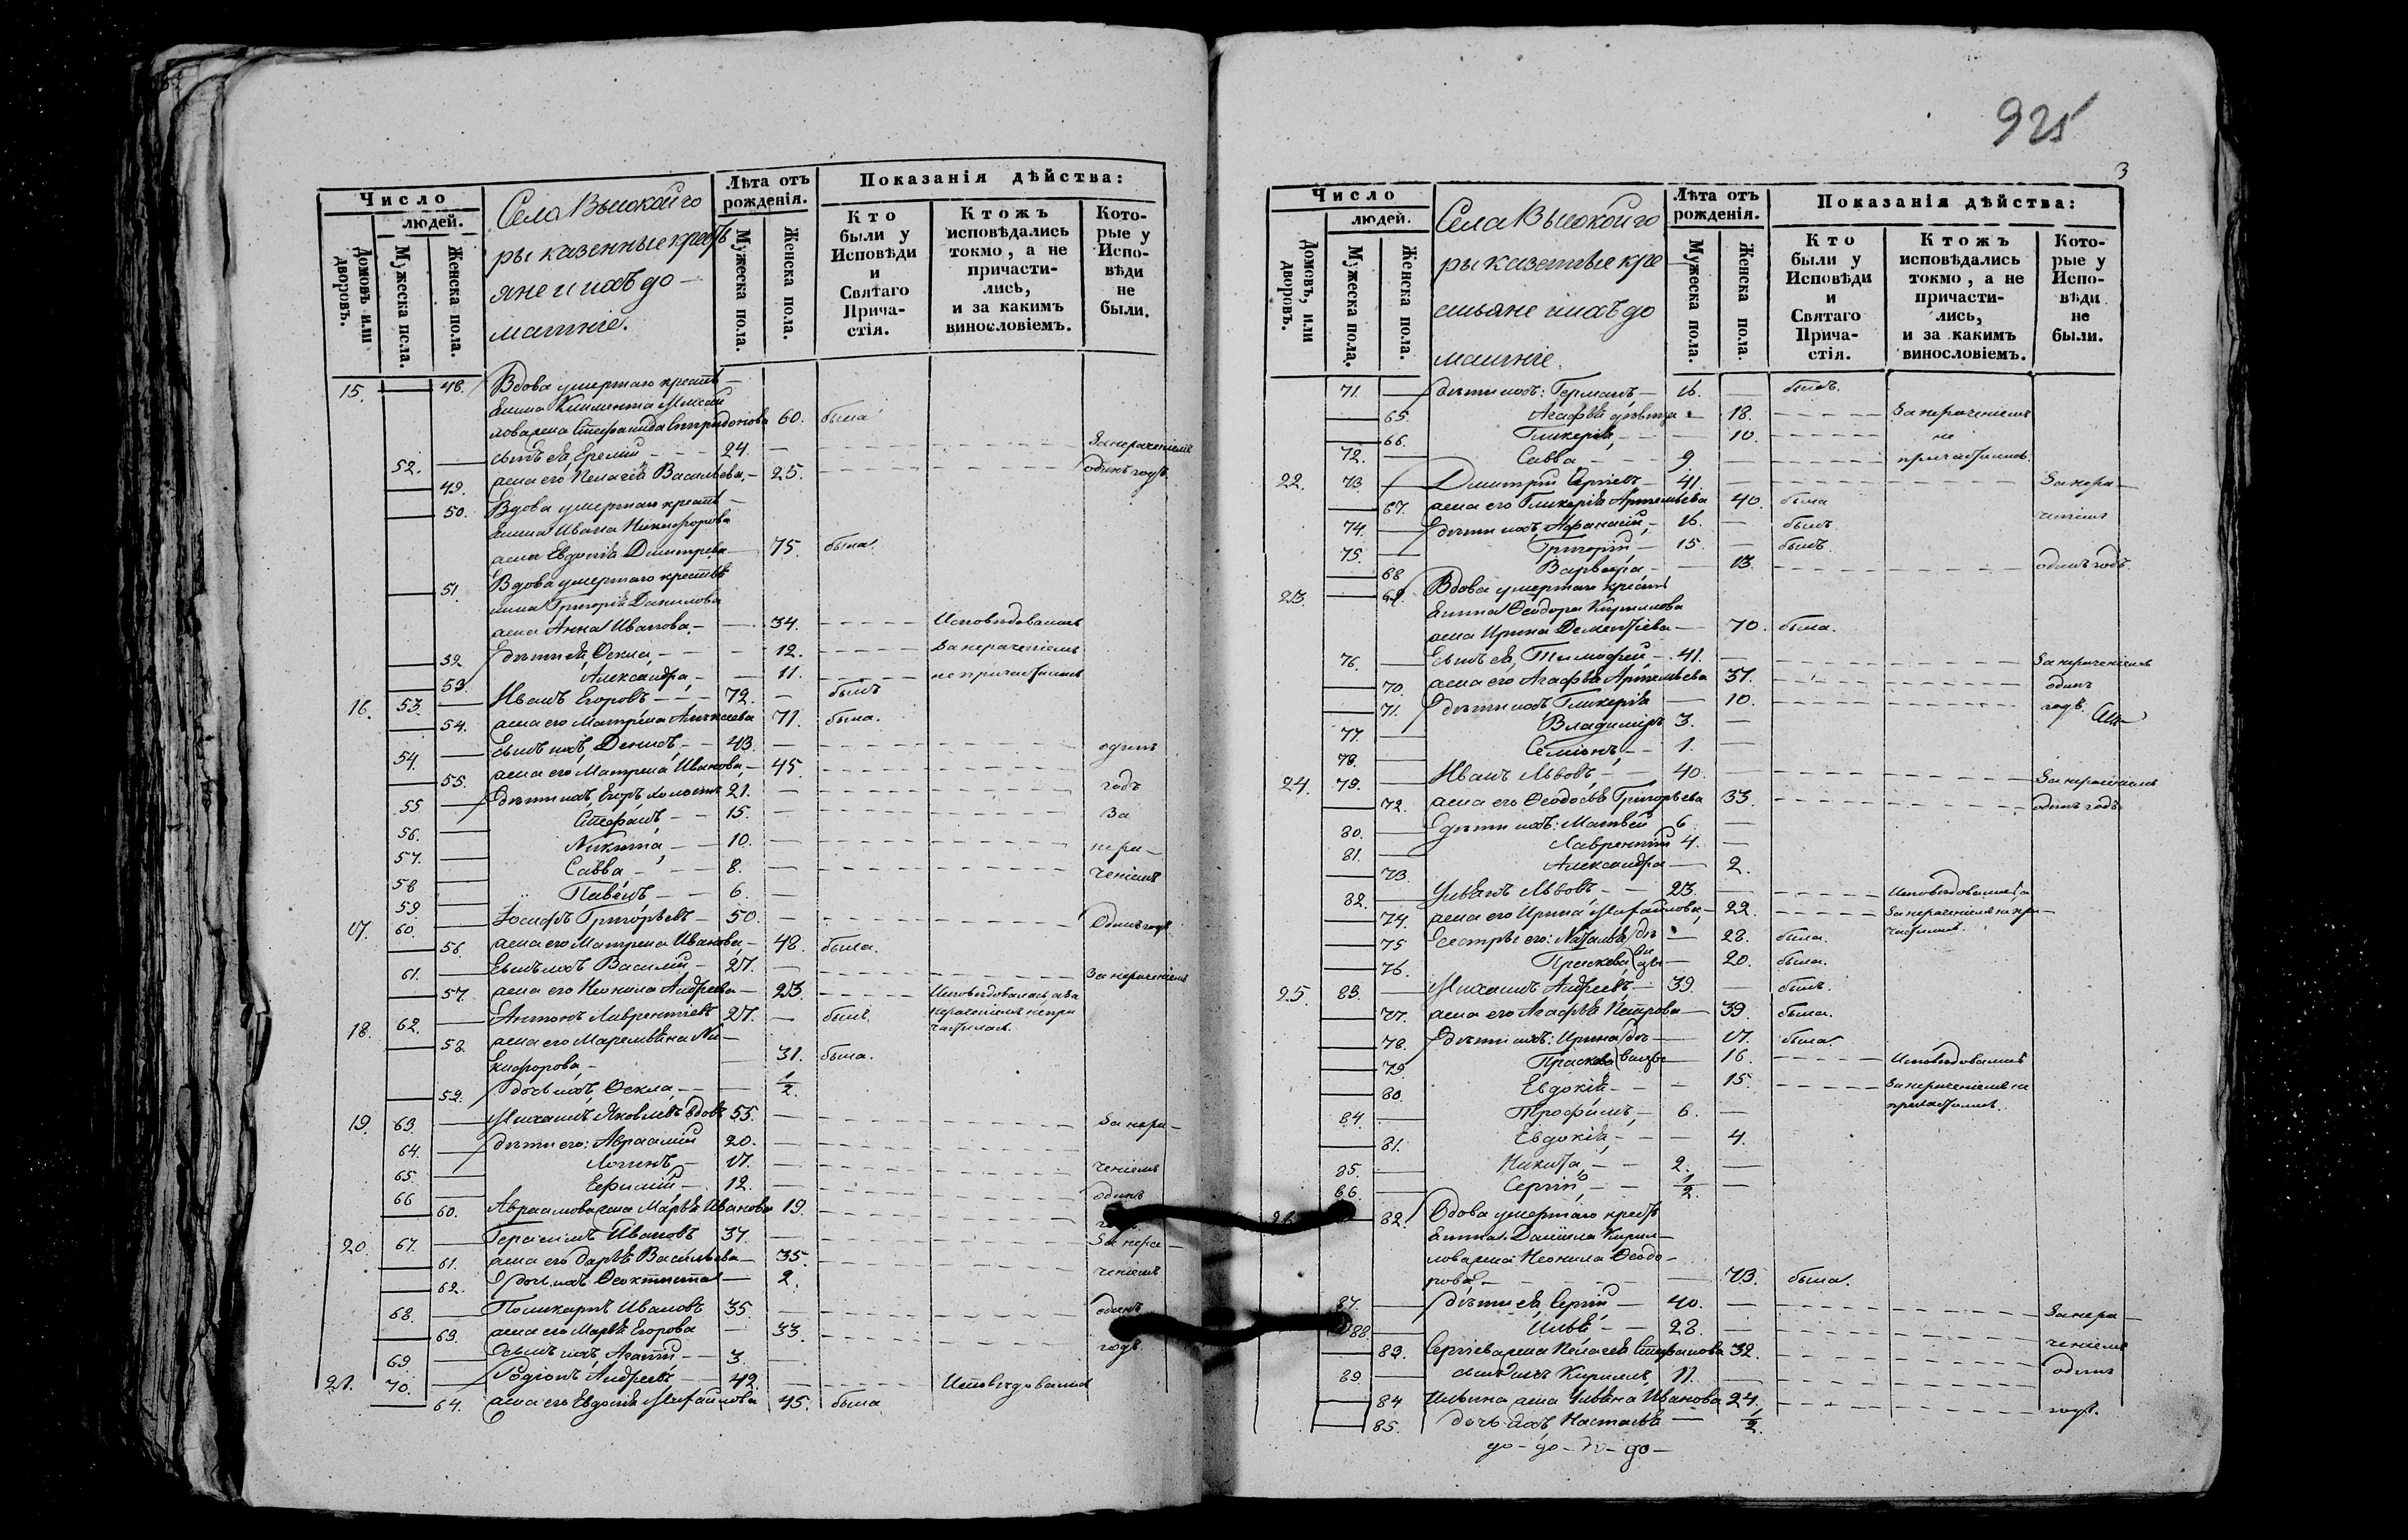 Число
людей.
Домовъ или дворовъ.
Мужеска пола.
Женска пола.
Села Высокой го
ры казенные крест
яне и ихъ до-
машніе.
Лѣта отъ рожденія.
Мужеска пола.
Женска пола.
Показанія дѣйства:
Кто были у Исповѣди и Святаго Прича-стія.
Ктожъ исповѣдались токмо, а не причасти-лись, и за какимъ винословіемъ.
Кото-рые у Испо-вѣди не были.
15. — 48. Вдова умершаго крестя-
нина Климента Михай
лова жена Стефанида Спиридонова 60. была
52. — сынъ ея, Еремій 24. — За нераченіемъ
— 49. жена его Пелагея Васильева, 25. одинъ годъ.
— 50. Вдова умершаго крестья-
нина Ивана Никифорова
жена Евдокія Димитрева 75. была.
— 51. Вдова умершаго крестья
нина Григорія Данилова
жена Анна Иванова, — 34. Исповѣдовались
— 52. дѣти ея, Ѳекла, — 12. За нераченіемъ
— 53. Александра, — 11. не причастились
16. 53. — Иванъ Егоровъ 72. — былъ
— 54. жена его Матрена Алексеева 71. была.
54. — Сынъ ихъ, Денисъ, 43. — одинъ
— 55. жена его Матрена Иванова, 45. годъ
55. — дѣти ихъ, Егоръ холостъ 21. —
56. — Стефанъ, 15. — За
57. — Никита, 10. — нера-
58. — Савва 8. — ченіемъ
59. — Павелъ 6. —
17. 60. — Іосифъ Григорьевъ 50. — Одинъ годъ
— 56. жена его Матрена Иванова, 48. была.
61. — Сынъ ихъ Василій 27. — За нераченіемъ
— 57. жена его Неонила Андреева 23. Исповѣдовалась, а за
нераченіемъ не при
частилась.
18. 62. — Антонъ Лаврентіевъ 27. — былъ.
— 58. жена его Маремьяна Ни-
кифорова, 31. была.
— 59. дочь ихъ, Ѳекла, — 1/2.
19. 63. — Михаилъ Яковлевъ вдовъ 55. — За нера-
64. — дѣти его: Авраамій 20. —
65. — Логинъ 17. — ченіемъ
66 — Ефимій 12. — одинъ
60. Авраамова жена Марья Иванова 19.
20. 67. — Герасимъ Ивановъ 37. — За нера-
— 61. жена его Дарья Васильева 35. ченіемъ
— 62. дочь ихъ Ѳеоктиста 2.
68. — Поликарпъ Ивановъ 35. — одинъ
— 63. жена его Марья Егорова — 33. годъ.
69. — Сынъ ихъ, Агапій 3. —
21. 70. — Родіонъ Андреевъ 42. — Исповѣдовался
— 64. жена его Евдокія Михайлова 45. была
925
3
Число
людей.
Домовъ, или дворовъ.
Мужеска пола.
Женска пола.
Села Высокой го
ры казенные кре
стьяне и ихъ до
машніе.
Лѣта отъ рожденія.
Мужеска пола.
Женска пола.
Показанія дѣйства:
Кто были у Исповѣди и Святаго Прича-стія.
Ктожъ исповѣдались токмо, а не причасти-лись, и за какимъ винословіемъ.
Кото-рые у Испо-вѣди не были.
71. — дѣти ихъ: Германъ, 16. — былъ.
— 65. Агафья дѣвица — 18. За нераченіемъ
— 66. Гликерія, — 10. не
72. — Савва 9 — причастились.
22. 73. — Димитрій Сергіевъ 41. — За нера-
— 67. жена его Гликерія Артемьева 40. была
74. — дѣти ихъ, Афанасій, 16. — былъ ченіемъ
75. — Григорій 15. — былъ
— 68 Варвара — 13. одинъ годъ
23. — 69. Вдова умершаго крестья
нина Ѳеодора Кирилова
жена Ирина Дементіева — 70. была.
76. — Сынъ ея, Тимофей, 41. — За нераченіемъ
— 70. жена его Агафья Артемьева 37. одинъ
— 71. дѣти ихъ Гликерія — 10. годъ.
77. — Владиміръ 3. —
78. — Семіонъ, 1. —
24. 79. — Иванъ Львовъ, 40. — За нераченіемъ
— 72. жена его Ѳеодосья Григорьева 33. одинъ годъ
80. — дѣти ихъ: Матвей 6 —
81. — Лаврентій 4. —
— 73. Александра — 2.
82. — Ульянъ Львовъ 23. — Исповѣдовались, а
— 74. жена его Ирина Михайлова, 22. За нераченіемъ не при-
частились.
— 75 Сестры его: Наталья — 28. была.
— 76. Праскева — 20. была.
25 83. — Михаилъ Андреевъ, 39. — былъ.
— 77. жена его Агафья Петрова 39. была.
— 78. дѣти ихъ: Ирина — 17. была
— 79 Праскева — 16. Исповѣдовались
— 80. Евдокія — 15. За нераченіемъ не
причастились.
84. — Трофимъ, 6. —
— 81. Евдокія, — 4.
85. — Никита, 2. —
86. — Сергій, 1/2. —
— 82. Вдова умершаго крестья
нина Даніила Кирил-
лова жена Неонила Ѳеодо-
рова — 73. была.
87. — дѣти ея, Сергій 40. — За нера-
88. — Илья 28. —
— 83. Сергіева жена Пелагея Стефанова 32. ченіемъ
89 — сынъ ихъ Кириллъ, 11. — одинъ
— 84 Ильина жена Ульяна Иванова 24. годъ.
— 85. дочь ихъ Настасья — 1/2.